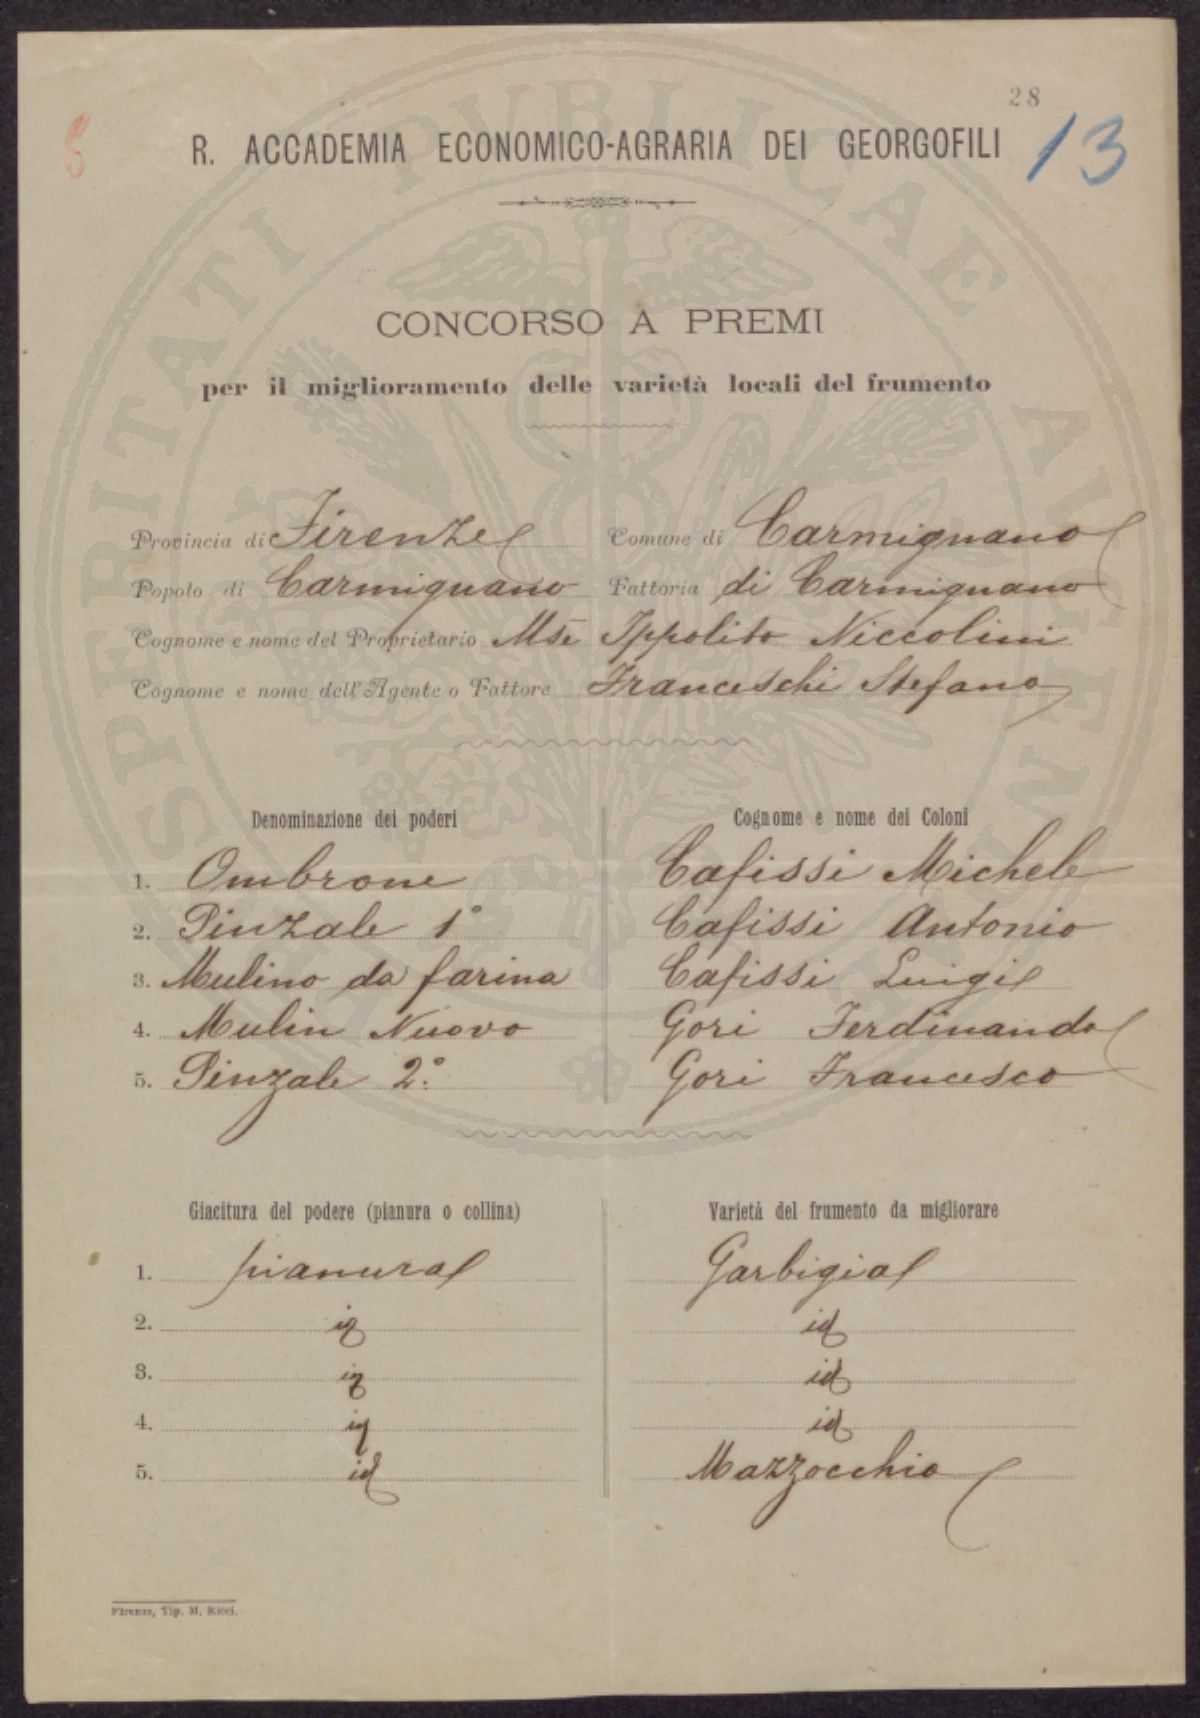 28
13
8
R. ACCADEMIA ECONOMICO-AGRARIA DEI GEORGOFILI
CONCORSO A PREMI
per il miglioramento delle varietà locali del frumento
Provincia di Firenze Comune di Carmignano
Popolo di Carmignano Fattoria di Carmignano
Cognome e nome del Proprietario Mse Ippolito Niccolini
Cognome e nome dell'Agente o Fattore Franceschi Stefano
Denominazione dei poderi Cognome e nome dei Coloni
1. Ombrone Cafissi Michele
2. Pinzale 1° Cafissi Antonio
3. Mulino da farina Cafissi Luigi
4. Mulin Nuovo Gori Ferdinando
5. Pinzale 2° Gori Francesco
Giacitura del podere (pianura o collina) Varietà del frumento da migliorare
1. pianura Garbigia
2. id id
3. id id
4. id id
5. id Mazzocchio
Firenze, Tip. M. Ricci.
PROSPERITATI PVBLICAE AVGENDAE